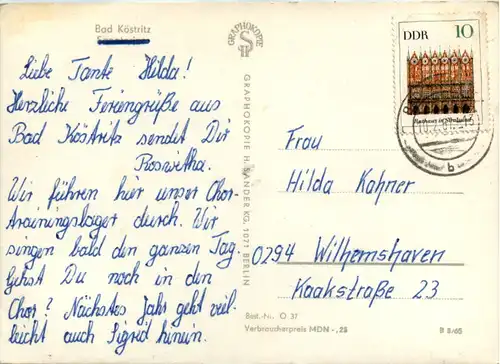 Bad Köstritz
Liebe Tante Hilda!
Herzliche Feriengrüße aus
Bad Köstritz sendet Dir
Roswitha.
Wir führen hier unser Chor-
trainingslager durch. Wir
singen bald den ganzen Tag.
Gehst Du noch in den
Chor? Nächstes Jahr geht viel-
leicht auch Sigrid hinein.
GRAPHOKOPIE
GRAPHOKOPIE H. SANDER KG. 1071 BERLIN
DDR 10
b
Frau
Hilda Kahner
0294 Wilhemshaven
Kaakstraße 23
Best.-Nr. O 37
Verbraucherpreis MDN -,25
B 8/65